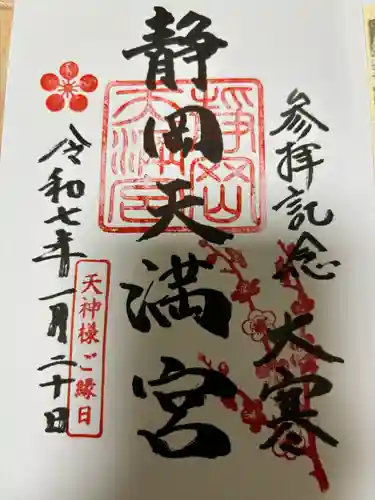 参拝記念
大寒
静岡天満宮
静岡天満宮
令和七年一月二十日
天神様ご縁日